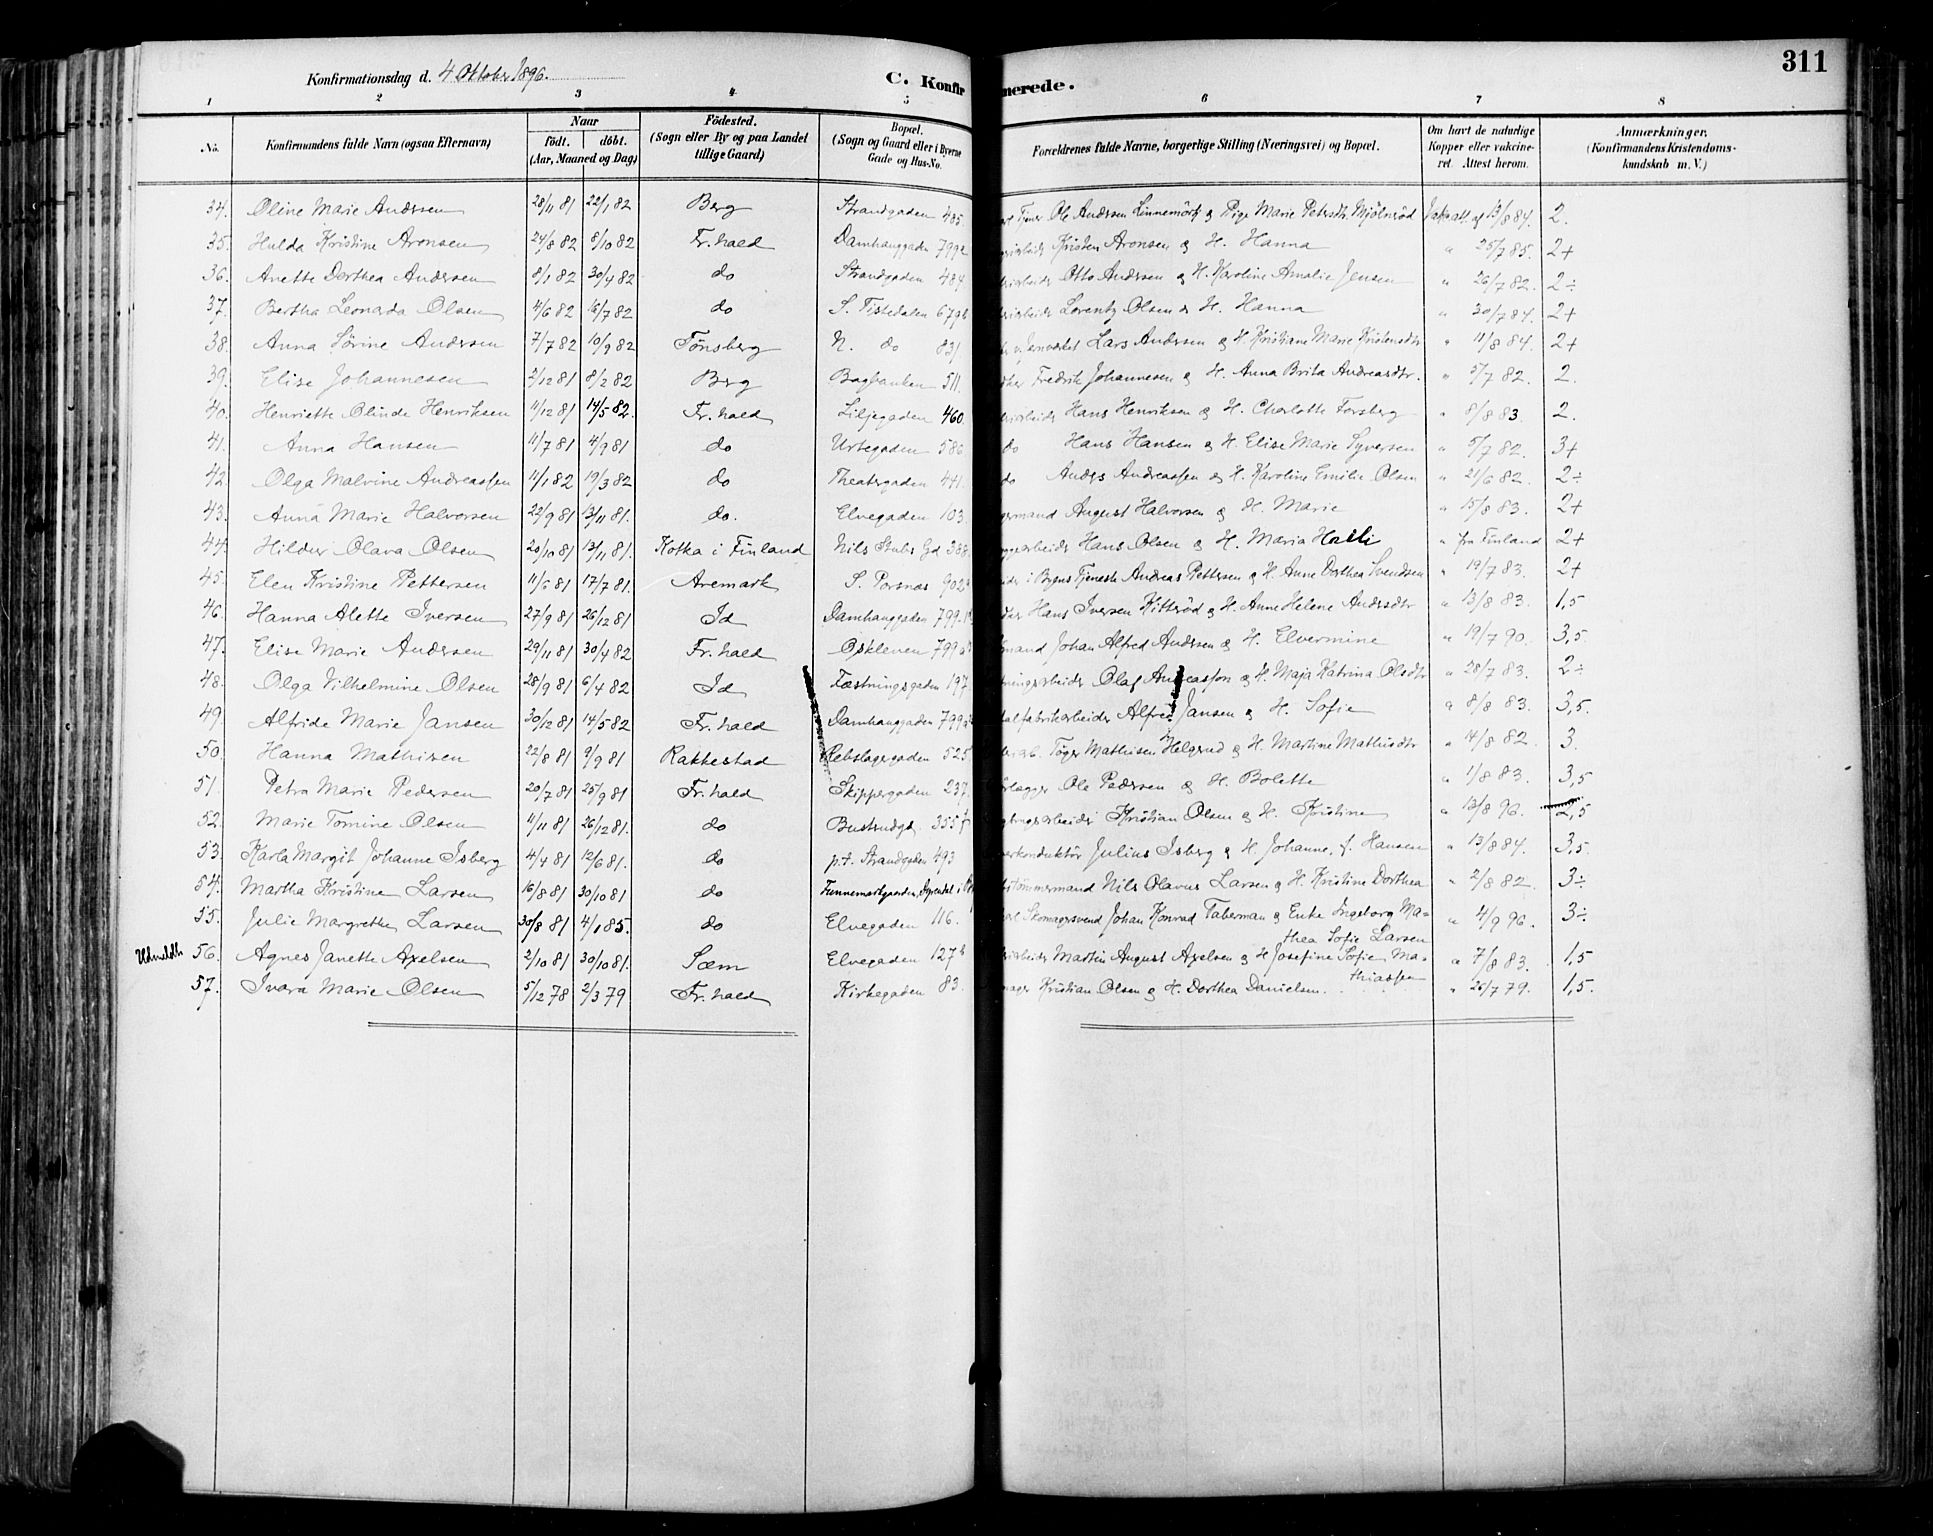 311
Konfirmationsdag d. 4 Oktober 1896.
C. Konfirmerede.
1 2 3 4 5 6 7 8
No. Konfirmandens fulde Navn (ogsaa Efternavn) Naar født. døbt. (Aar, Maaned og Dag) Fødested. (Sogn eller By og paa Landet tillige Gaard) Bopæl. (Sogn og Gaard eller i Byerne Gade og Hus-No. Forældrenes fulde Navne, borgerlige Stilling (Næringsvei) og Bopæl. Om havt de naturlige Kopper eller vakcineret. Attest herom. Anmærkninger. (Konfirmandens Kristendomskundskab m. V.)
34. Oline Marie Andersen 28/11 81 22/1 82 Berg Strandgaden 485. Tjener Ole Andersen Linnemörk & Pige Marie Petersdtr Mjölnröd 13/8 84. 2.
35. Hulda Kristine Aronsen 24/8 82 8/10 82 Fr.hald Damhauggaden 799 Kristen Aronsen & H. Hanna " 25/7 85. 2+
36. Anette Dorthea Andersen 8/1 82 30/4 82 do Strandgaden 484 Otto Andersen & H. Karoline Amalie Jensen " 26/7 82. 2÷
37. Bertha Leonarda Olsen 4/6 82 16/7 82 do S. Tistedalen 679b Lorentz Olsen & H. Hanna " 30/7 84. 2+
38. Anna Sörine Andersen 7/7 82 10/9 82 Tönsberg N. do 831 v. Jernværket Lars Andersen & H. Kristiane Marie Kristensdtr " 11/8 84. 2+
39. Elise Johannesen 2/12 81 8/2 82 Berg Bagbanken 511. Fredrik Johannesen & H. Anna Brita Andreasdtr. " 5/7 82. 2.
40. Henriette Olinde Henriksen 11/12 81 14/5 82. Fr.hald Liljegaden 460. Hans Henriksen & H. Charlotte Forsberg " 8/8 83 2.
41. Anna Hansen 11/7 81 4/9 81 do Urtegaden 586 do Hans Hansen & H. Elise Marie Syversen " 5/7 82. 3+
42. Olga Malvine Andreassen 11/1 82 19/3 82 do Theatergaden 441. do Anders Andreassen & H. Karoline Emilie Olsen " 21/6 82. 2÷
43. Anna Marie Halvorsen 22/9 81 13/11 81. do. Elvegaden 103. August Halvorsen & H. Marie " 15/8 83. 2+
44. Hildur Olava Olsen 20/10 81 13/11 81. Kotka i Finland Nils Stubs Gd 388. Hans Olsen & H. Maria Halli " fra Finland 2+
45. Elen Kristine Pettersen 11/6 81 17/7 81. Aremark S. Porsnæs 902 i Byens Tjeneste Andreas Pettersen & H. Anne Dorthea Svendsen " 19/7 83. 2+
46. Hanna Alette Iversen 27/9 81 26/12 81 Id Damhauggaden 799 Hans Iversen Kitteröd & H. Anne Helene Andersdtr " 13/8 83. 1,5
47. Elise Marie Andersen 29/11 81 30/4 82 Fr.hald Oskleven 799 Johan Alfred Andersen & H. Elvermine " 19/7 90. 3,5.
48. Olga Vilhelmine Olsen 28/9 81 6/4 82 Id Fæstningsgaden 197 Olaf Andreassön & H. Maja Katrina Olsdtr " 28/7 83. 2÷
49. Alfride Marie Jansen 30/12 81 14/5 82 Fr.hald Damhauggaden 799 Alfred Jansen & H. Sofie " 8/8 83. 3,5.
50. Hanna Mathisen 22/8 81 9/9 81 Rakkestad Rebslagergaden 525. Töger Mathisen Helgerud & H. Martine Mathisdtr " 4/8 82. 3.
51. Petra Marie Pedersen 20/7 81 25/9 81 Fr.hald Skippergaden 237. Ole Pedersen & H. Bolette " 1/8 83. 3,5
52. Marie Tomine Olsen 11/11 81 26/12 81. do 355 Kristian Olsen & H. Kristine " 13/8 96. 2,5
53. Karla Margit Johanne Isberg 4/4 81 12/6 81. do p.t. Strandgaden 493 Julius Isberg & H. Johanne, f. Hansen " 13/8 84. 3,5.
54. Martha Kristine Larsen 16/8 81 30/10 81 do Nils Olavus Larsen & H. Kristine Dorthea " 2/8 82. 3÷
55. Julie Margrethe Larsen 30/8 81 4/1 85. do Elvegaden 116. Skomagersvend Johan Konrad Taberman & Enke Ingeborg Mathea Sofie Larsen " 4/9 96. 3÷
Udmeldt 56. Agnes Janette Axelsen 2/10 81 30/10 81. Sæm Elvegaden 127b Martin August Axelsen & H Josefine Sofie Mathiassen " 7/8 83. 1,5
57. Ivara Marie Olsen 5/12 78 2/3 79 Fr.hald Kirkegaden 83. Kristian Olsen & H. Dorthea Danielsen. " 26/7 79. 1,5.